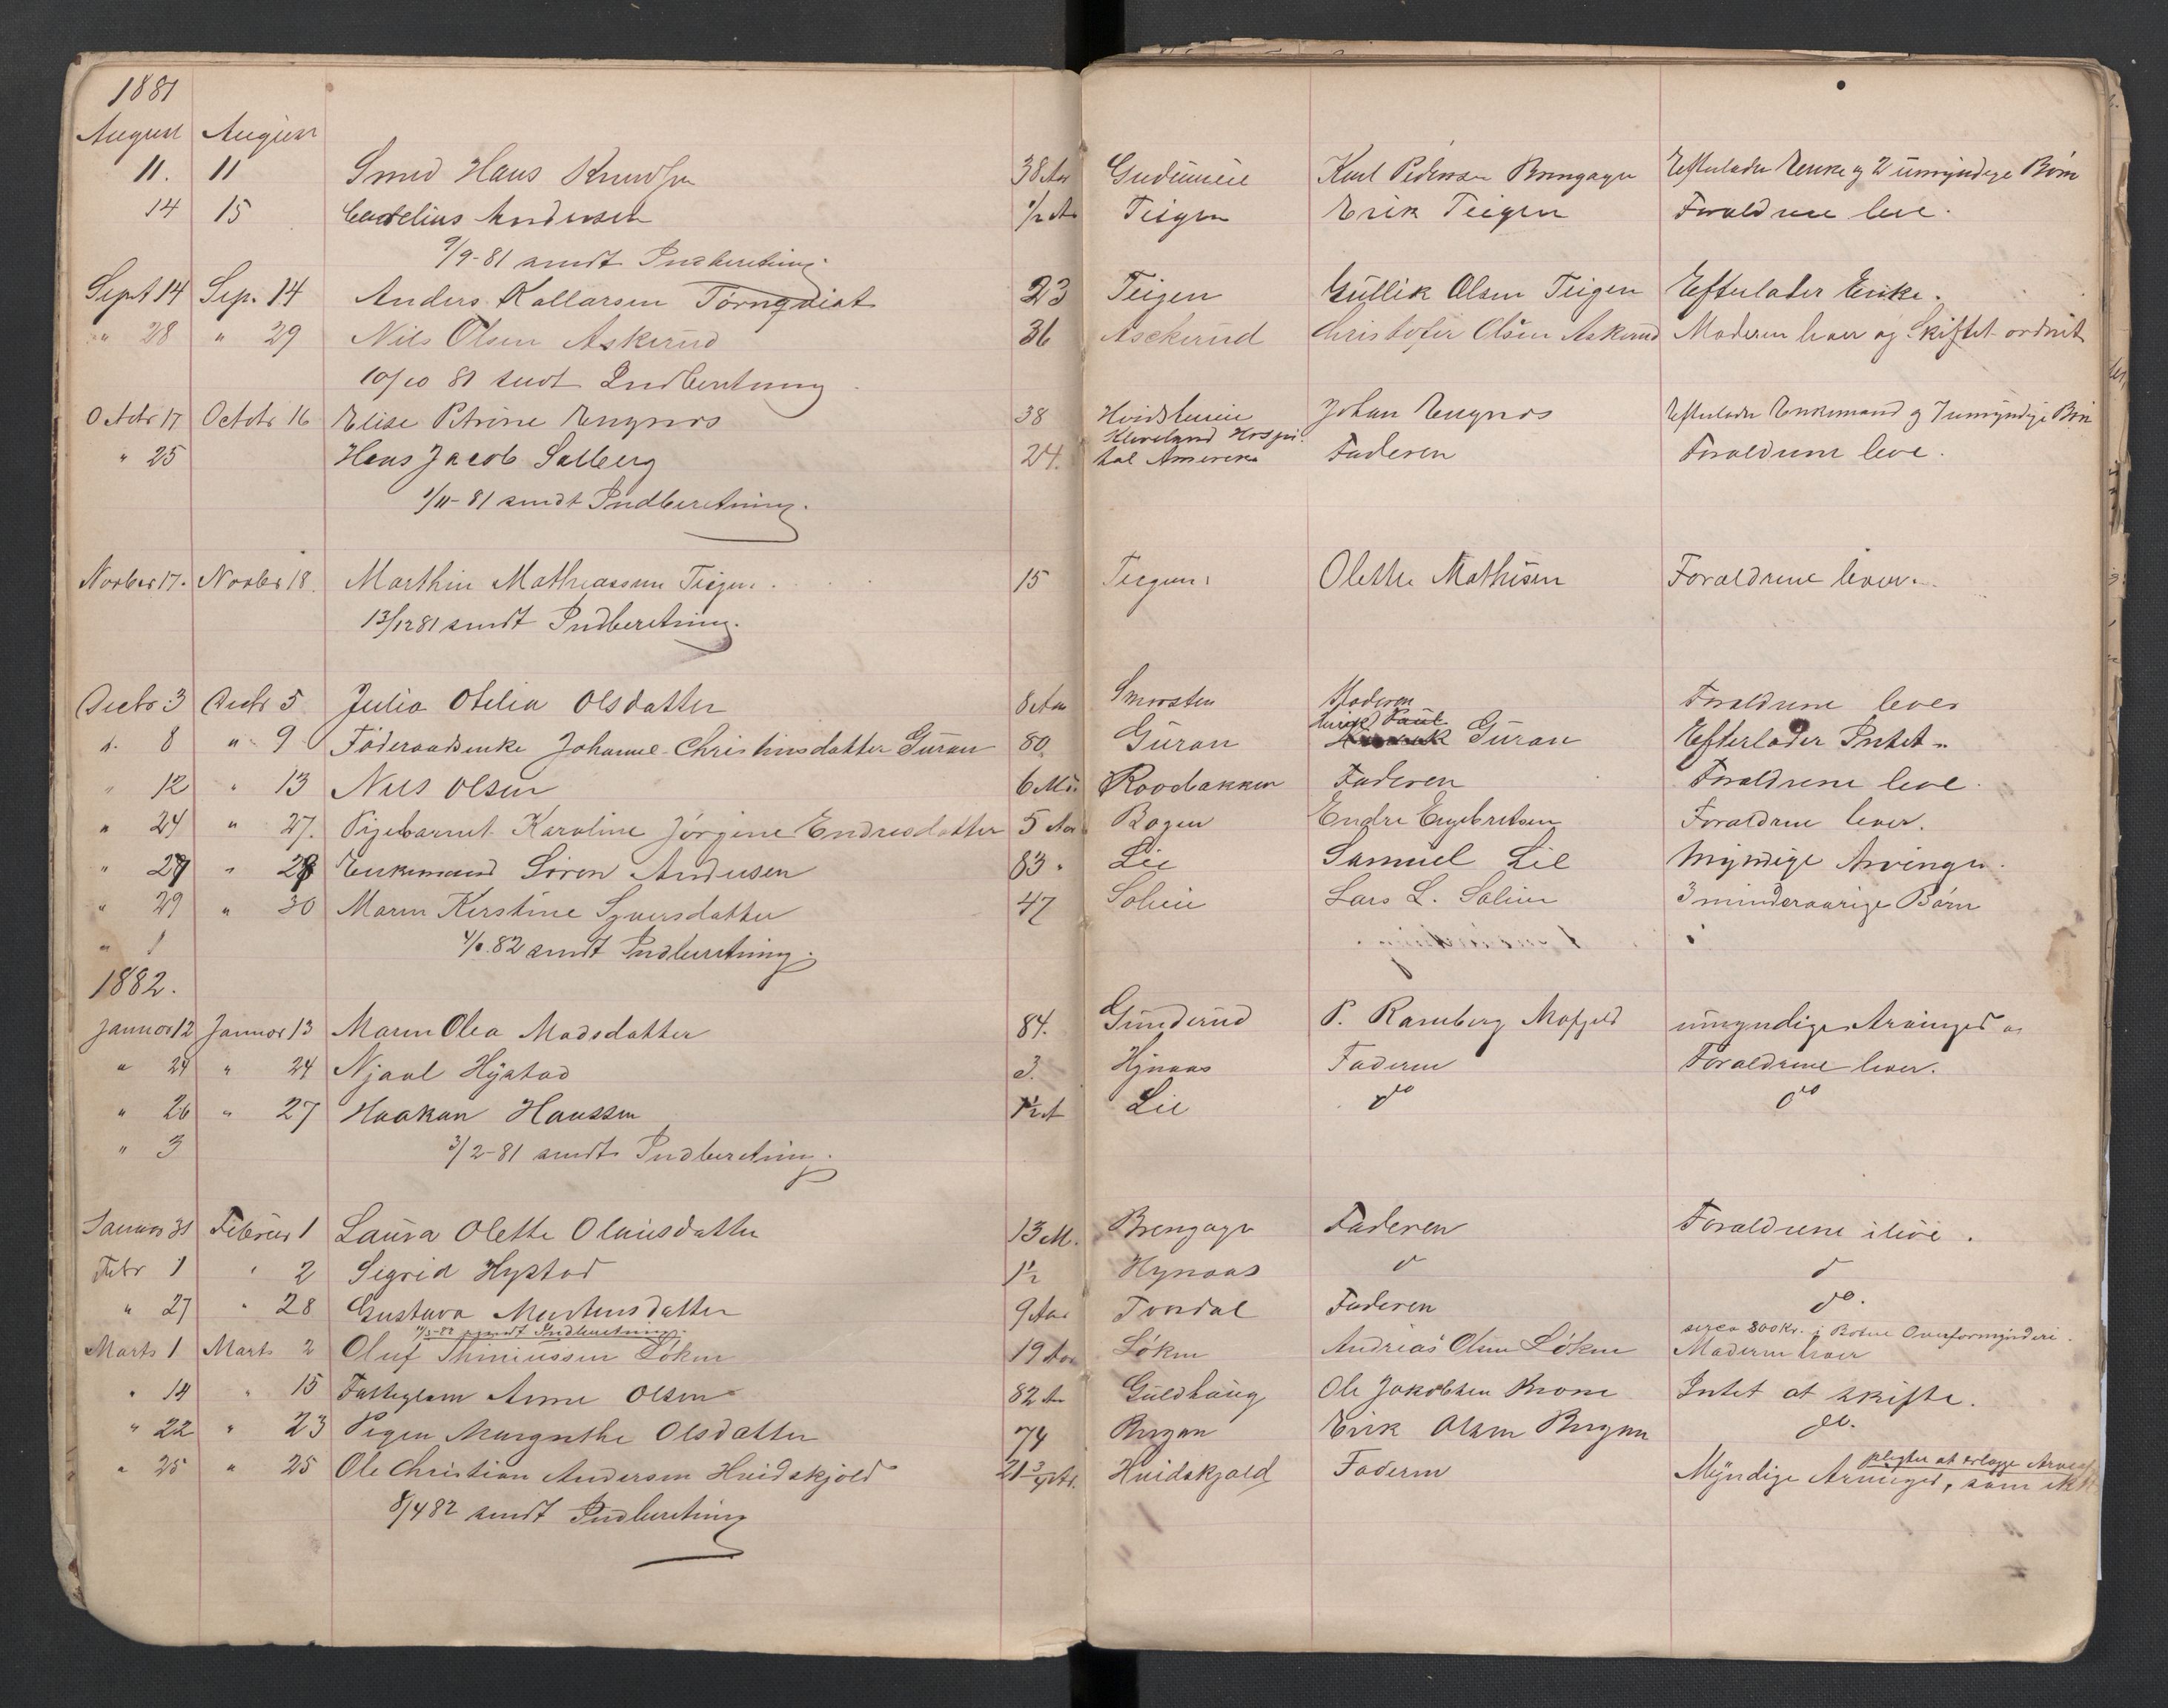 1881
August August
11. 11 Smed Hans Knudsen 38 Aar Gudimeie Karl Pedersen Brengagn Efterlader Enke og 2 umyndige Børn
14 15 Cornelius Andersen 1/2 Aar Teigen Erik Teigen Forældrene leve.
9/9-81 sendt Indberetning.
Sept 14 Sep. 14 Anders Kallarsen Törnqvist 23 Teigen Gullik Olsen Teigen Efterlader Enke.
" 28 " 29 Nils Olsen Askerud 36 Asckerud Christofer Olsen Askerud Moderen lever og Skiftet ordnet
10/10 81 sendt Indberetning.
Octobr 17 Octobr 16 Elise Petrine Engnæs 38 Johan Engnæs Efterlader Enkemand og 7 umyndige Børn
" 25 Hans Jacob Solberg 24. Kleveland Hospital Amerika Faderen Forældrene leve.
1/11-81 sendt Indberetning.
Novber 17. Novber 18. Marthin Mathiassen Teigen. 15 Teigen. Olette Mathisen Forældrene lever.
13/12 81 sendt Indberetning.
Decbr 3 Decbr 5 Julia Otilia Olsdatter 8 Aar Smorsten Moderen Forældrene leve
" 8 " 9 Föderaadsenke Johanne Christinsdatter Guran 80. Guran Paul Guran Efterlader Intet.
" 12 " 13 Nils Olsen 6 Md. Roobakken Faderen Forældrene leve.
" 24 " 27. Pigebarnet Karoline Jørgine Endresdatter 5 Aar Bogen Endre Engebretsen Forældrene lever.
" 27 " 28 Enkemand Sören Andersen 83. Lie Samuel Lie Myndige Arvinger.
" 29 " 30 Maren Kerstine Syversdatter 47 Solieie Lars L. Solieie 3 minderaarige Børn
" 1 4/1.82 sendt Indberetning.
1882.
Januar 12 Januar 13 Maren Olea Madsdatter 84. Gunderud P. Ramberg Mofjeld umyndige Arvinger
" 24 " 24 Njaal Hystad 3. Hynaas Faderen Forældrene lever.
" 26 " 27 Haakon Hanssen 1 1/2 A Lie do do
" 3 3/2-81 sendt Indberetning.
Januar 31 Februar 1 Laura Olette Olausdatter 13 M. Brengagn Faderen Forældrene ilive.
Febr 1 " 2 Sigrid Hystad 1 1/2 Hynaas d d
" 27 " 28 Gustava Martinsdatter 9 Aar Tvordal Faderen do.
11/3-82 sendt Indberetning.
Marts 1 Marts 2 Oluf Thiniussen Løken 19 Aar Løken Andreas Olsen Løken circa 800 Kr. i Botne Overformynderi. Moderen lever
" 14 " 15 Fattiglem Anne Olsen 82 Aar Guldhaug Ole Jakobsen Moene Intet at skifte.
" 22 " 23 Pigen Margrethe Olsdatter 74 Bergan Erik Olsen Bergan do.
" 25 " 25 Ole Christian Andersen Hvidskjold 21 3/4 Aar. Hvidskjold Faderen Myndige Arvinger, som ikke pligter at erlægge Arveaf
8/4 82 sendt Indberetning